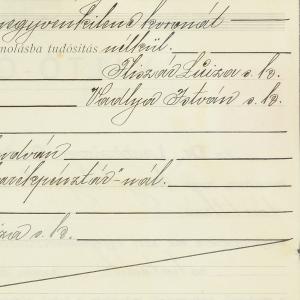 negyvenkilenc koronát
molásba tudósítás nélkül.
Riszár Luiza s. k.
Vadlya István s. k.
udván
arékpénztár"-nál.
iza s. k.